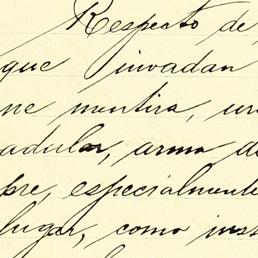 Respecto de
que invadan
me mentira, un
adular, arma de
pre, especialmente
lugar, como ins